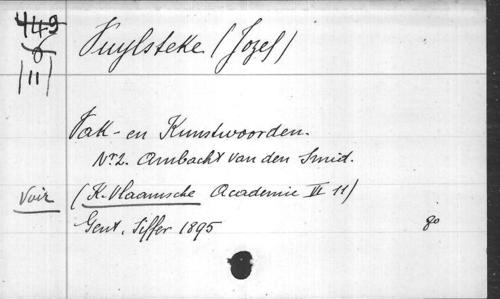 449
6
11
Vuylsteke (Jozef)
Vak- en Kunstwoorden.
Nr 2. Ambacht van den Smid.
Voir (K. Vlaamsche Academie VI 11)
Gent, Siffer 1895 8o